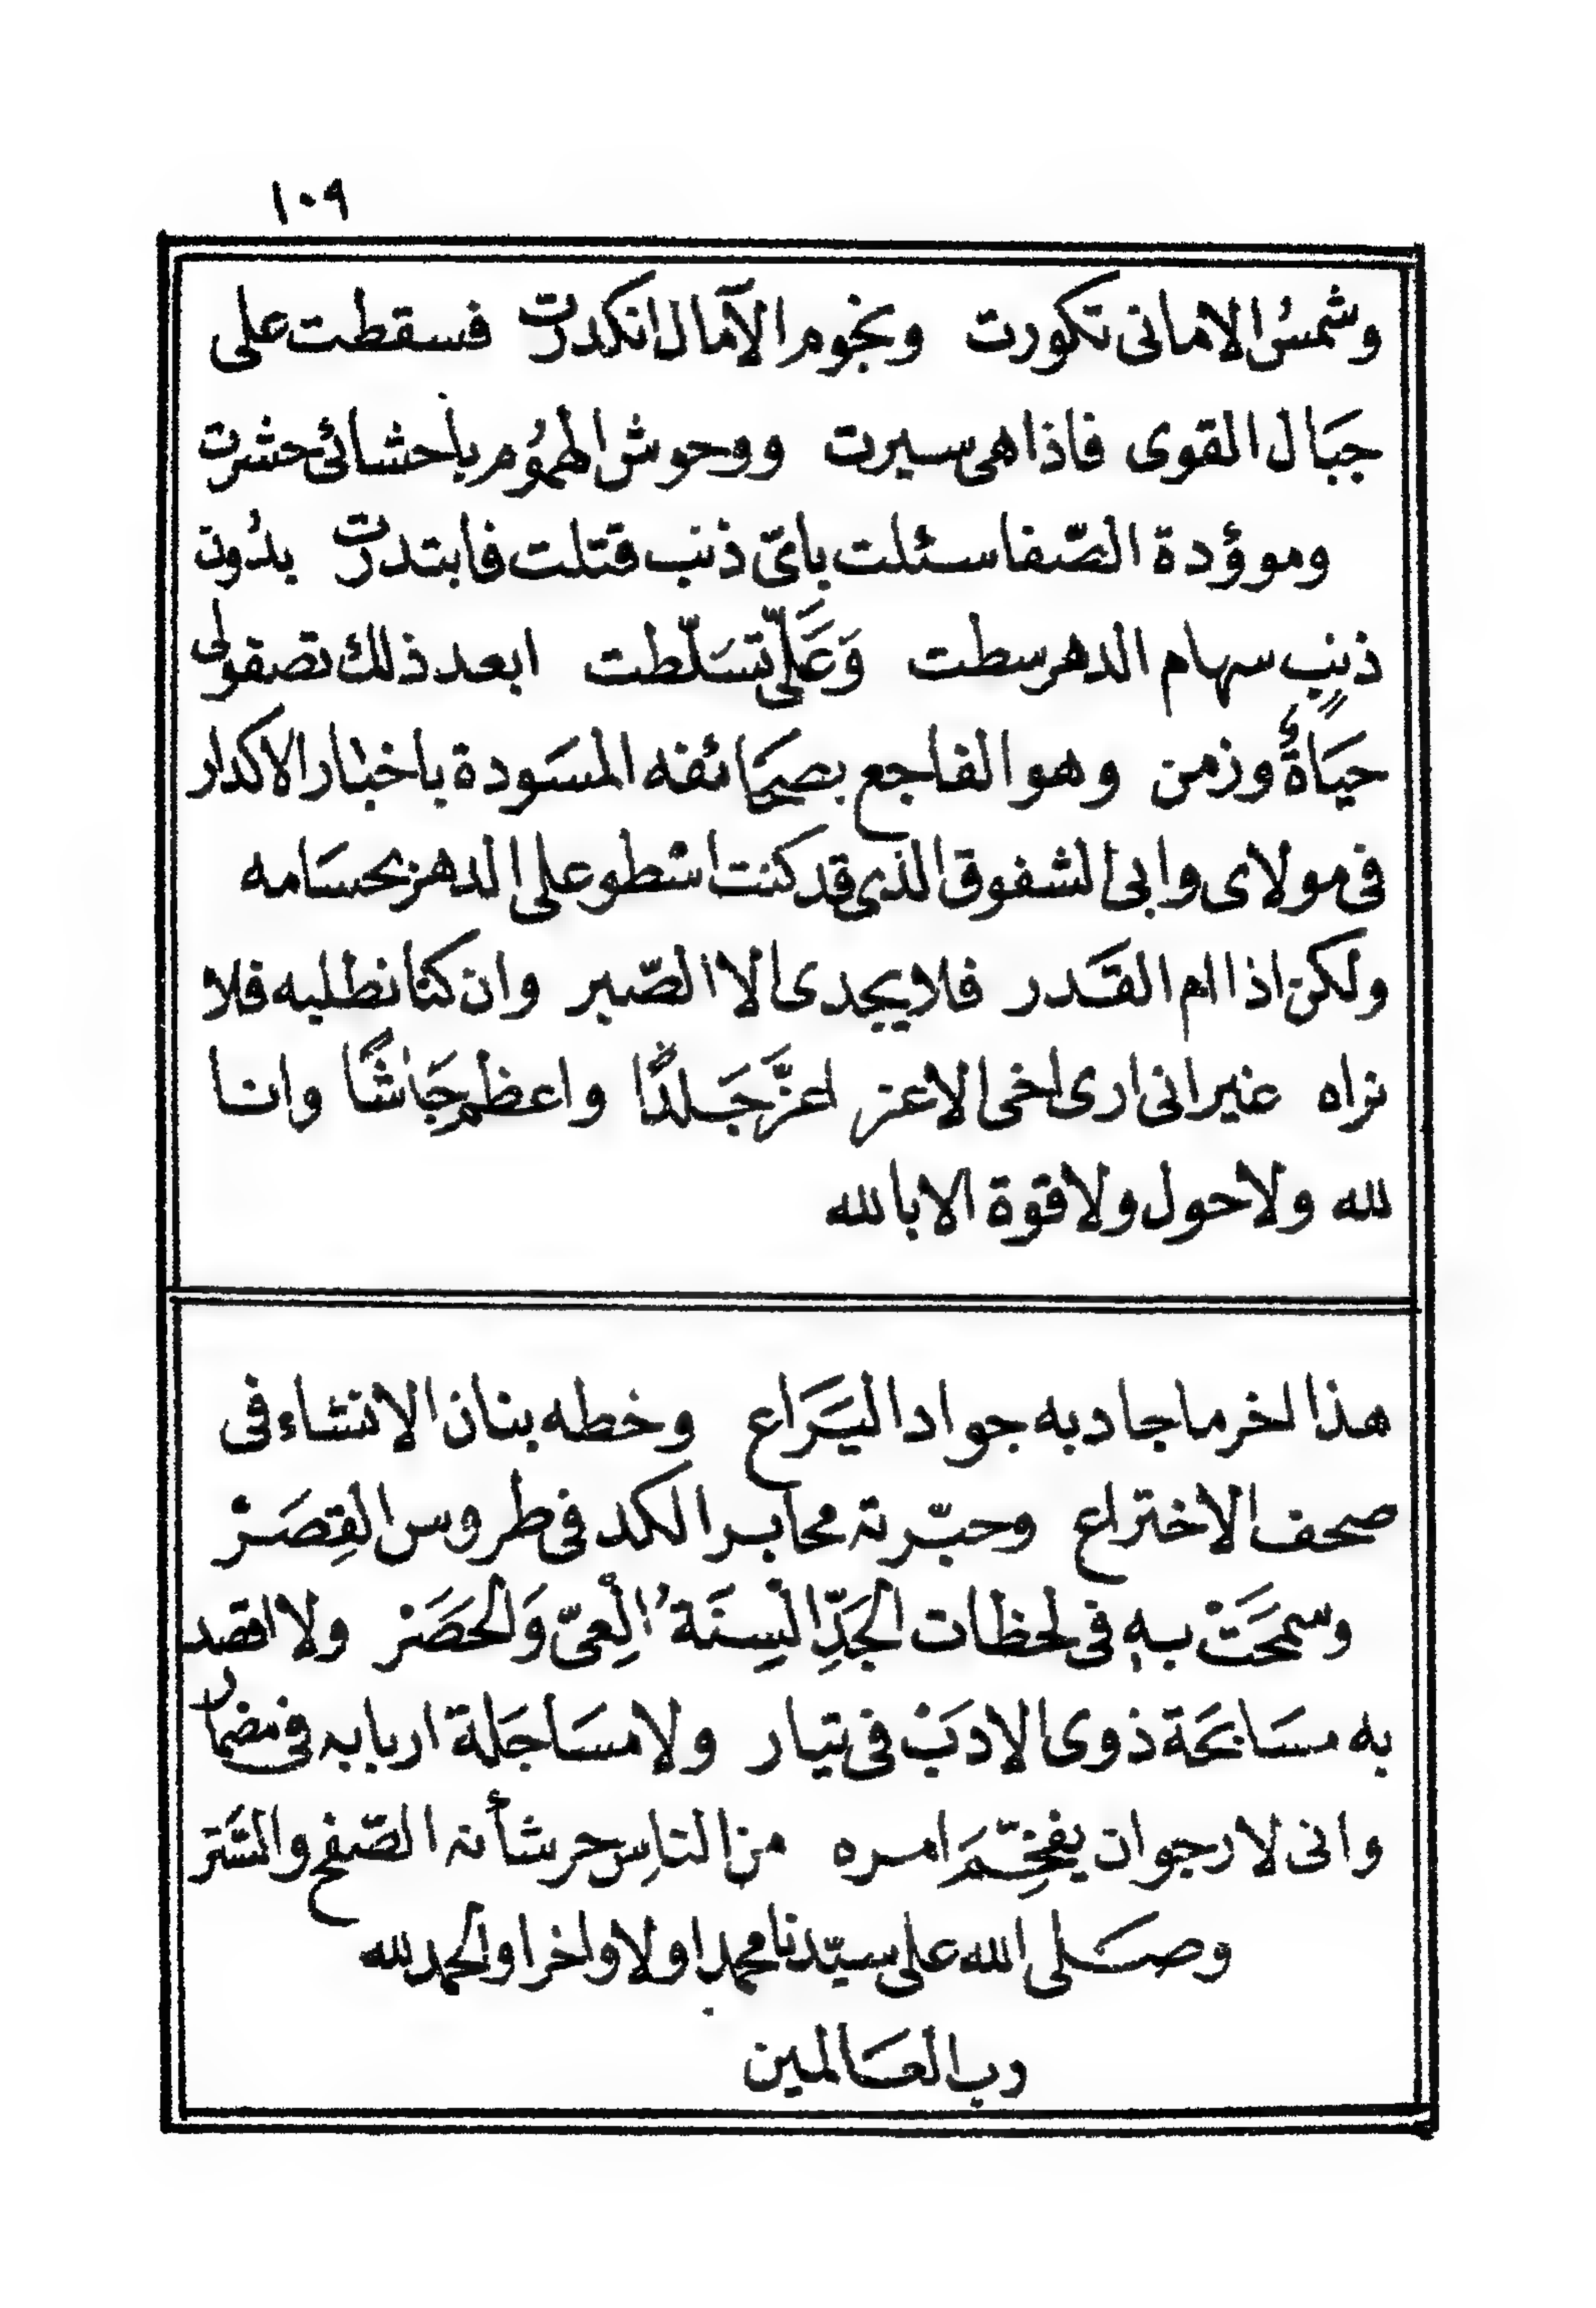 ١٠٩
وشمسُ الامانى تكورت ونجوم الآمال انكدرت فسقطت على
جبَال القوى فاذا هى سيرت ووحوش الهمُوم باحشائى حشرت
وموؤدة الصّفا سئلت باىّ ذنب قتلت فابتدرت بدُون
ذنبٍ سهام الدهر سطت وَعَلَىّ تسَلّطت ابعد ذلك تصفو لى
حيَاةٌ وزمن وهو الفاجع بصحَائفه المسَودة باخبار الاكدار
فى مولاى وابى الشفوق الذى قد كنت اسطو على الدهر بحسَامه
ولكن اذا ام القَدر فلا يجدى الا الصّبر وان كنا نطلبه فلا
نراه غير انى ارى اخى الاعز اعزَّ جَلدًا واعظم جَاشًا وانا
لله ولا حول ولا قوة الا بالله
هذا اخر ما جاد به جواد اليَرَاع وخطه بنان الانشاء فى
صحف الاختراع وحبّرته محابر الكد فى طروس القِصَرْ
وسمحَتْ بهِ فى لحظات الجَدِّ الْسِنَةُ الْعِىّ وَالحَصَرْ ولا اقصد
به مسَابحَة ذوى الادبْ فى تيار ولا مسَاجَلة اربابه فى مضمار
وانى لارجو ان يفخِّمَ امره من الناس حر شأنه الصّفح والسّتر
وصَلى الله على سيّدنا محمد اولا واخرا والحمد لله
رب العَالمين